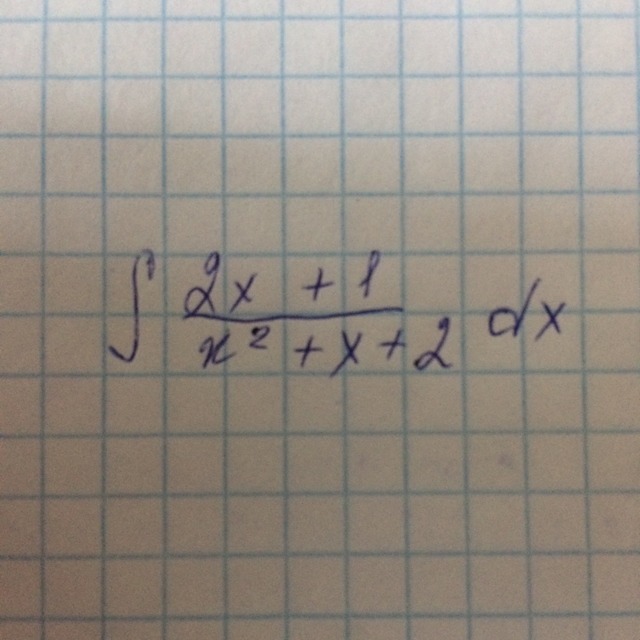 ∫ (2x + 1)/(x² + x + 2) dx